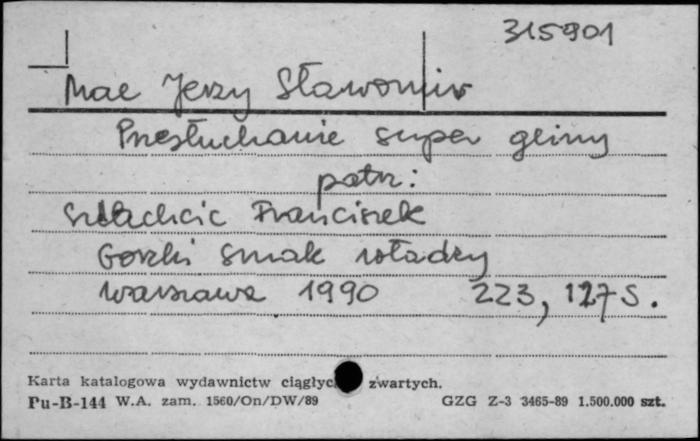 315901
Mac Jerzy Sławomir
Przesłuchanie super gliny
patrz:
Szlachcic Franciszek
Gorzki smak władzy
Warszawa 1990 223, 127 s.
Karta katalogowa wydawnictw ciągłyc zwartych.
Pu-B-144 W.A. zam. 1560/On/DW/89 GZG Z-3 3465-89 1.500.000 szt.